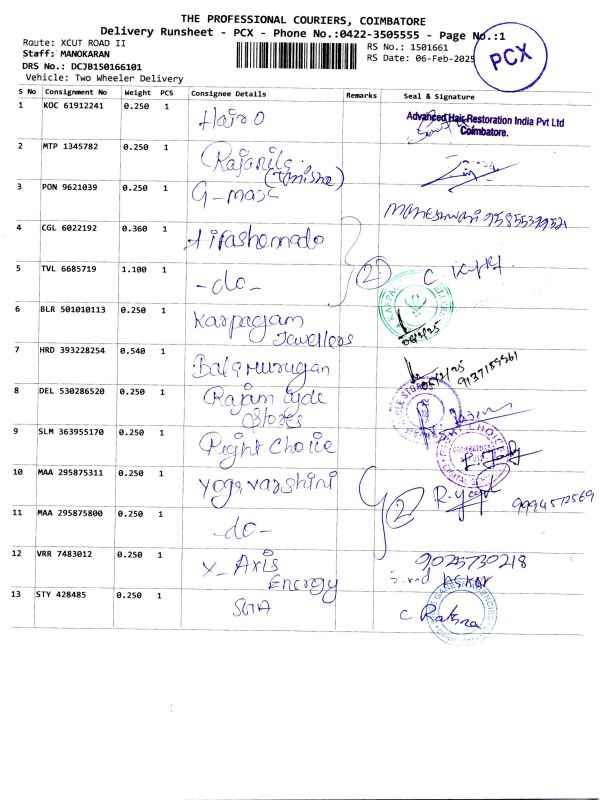 THE PROFESSIONAL COURIERS, COIMBATORE
Delivery Runsheet - PCX - Phone No.:0422-3505555 - Page No.:1
Route: XCUT ROAD II
RS No.: 1501661
Staff: MANOKARAN
RS Date: 06-Feb-2025
DRS No.: DCJB150166101
Vehicle: Two Wheeler Delivery
PCX
S No Consignment No Weight PCS Consignee Details Remarks Seal & Signature
1 KOC 61912241 0.250 1 Hair O
Advanced Hair Restoration India Pvt Ltd
Coimbatore.
2 MTP 1345782 0.250 1 Rajanila
(Tanisha)
3 PON 9621039 0.250 1 G-max
4 CGL 6022192 0.360 1
5 TVL 6685719 1.100 1 -do- 2
6 BLR 501010113 0.250 1 Karpagam
Jewellers
7 HRD 393228254 0.540 1 Balamurugan
9137159561
8 DEL 530286520 0.250 1 Rajam
Stores
9 SLM 363955170 0.250 1 Right Choice
10 MAA 295875311 0.250 1 Yogavarshini 2
9994572569
11 MAA 295875800 0.250 1 -do-
12 VRR 7483012 0.250 1 X-Axis
Energy
9025730218
13 STY 428485 0.250 1